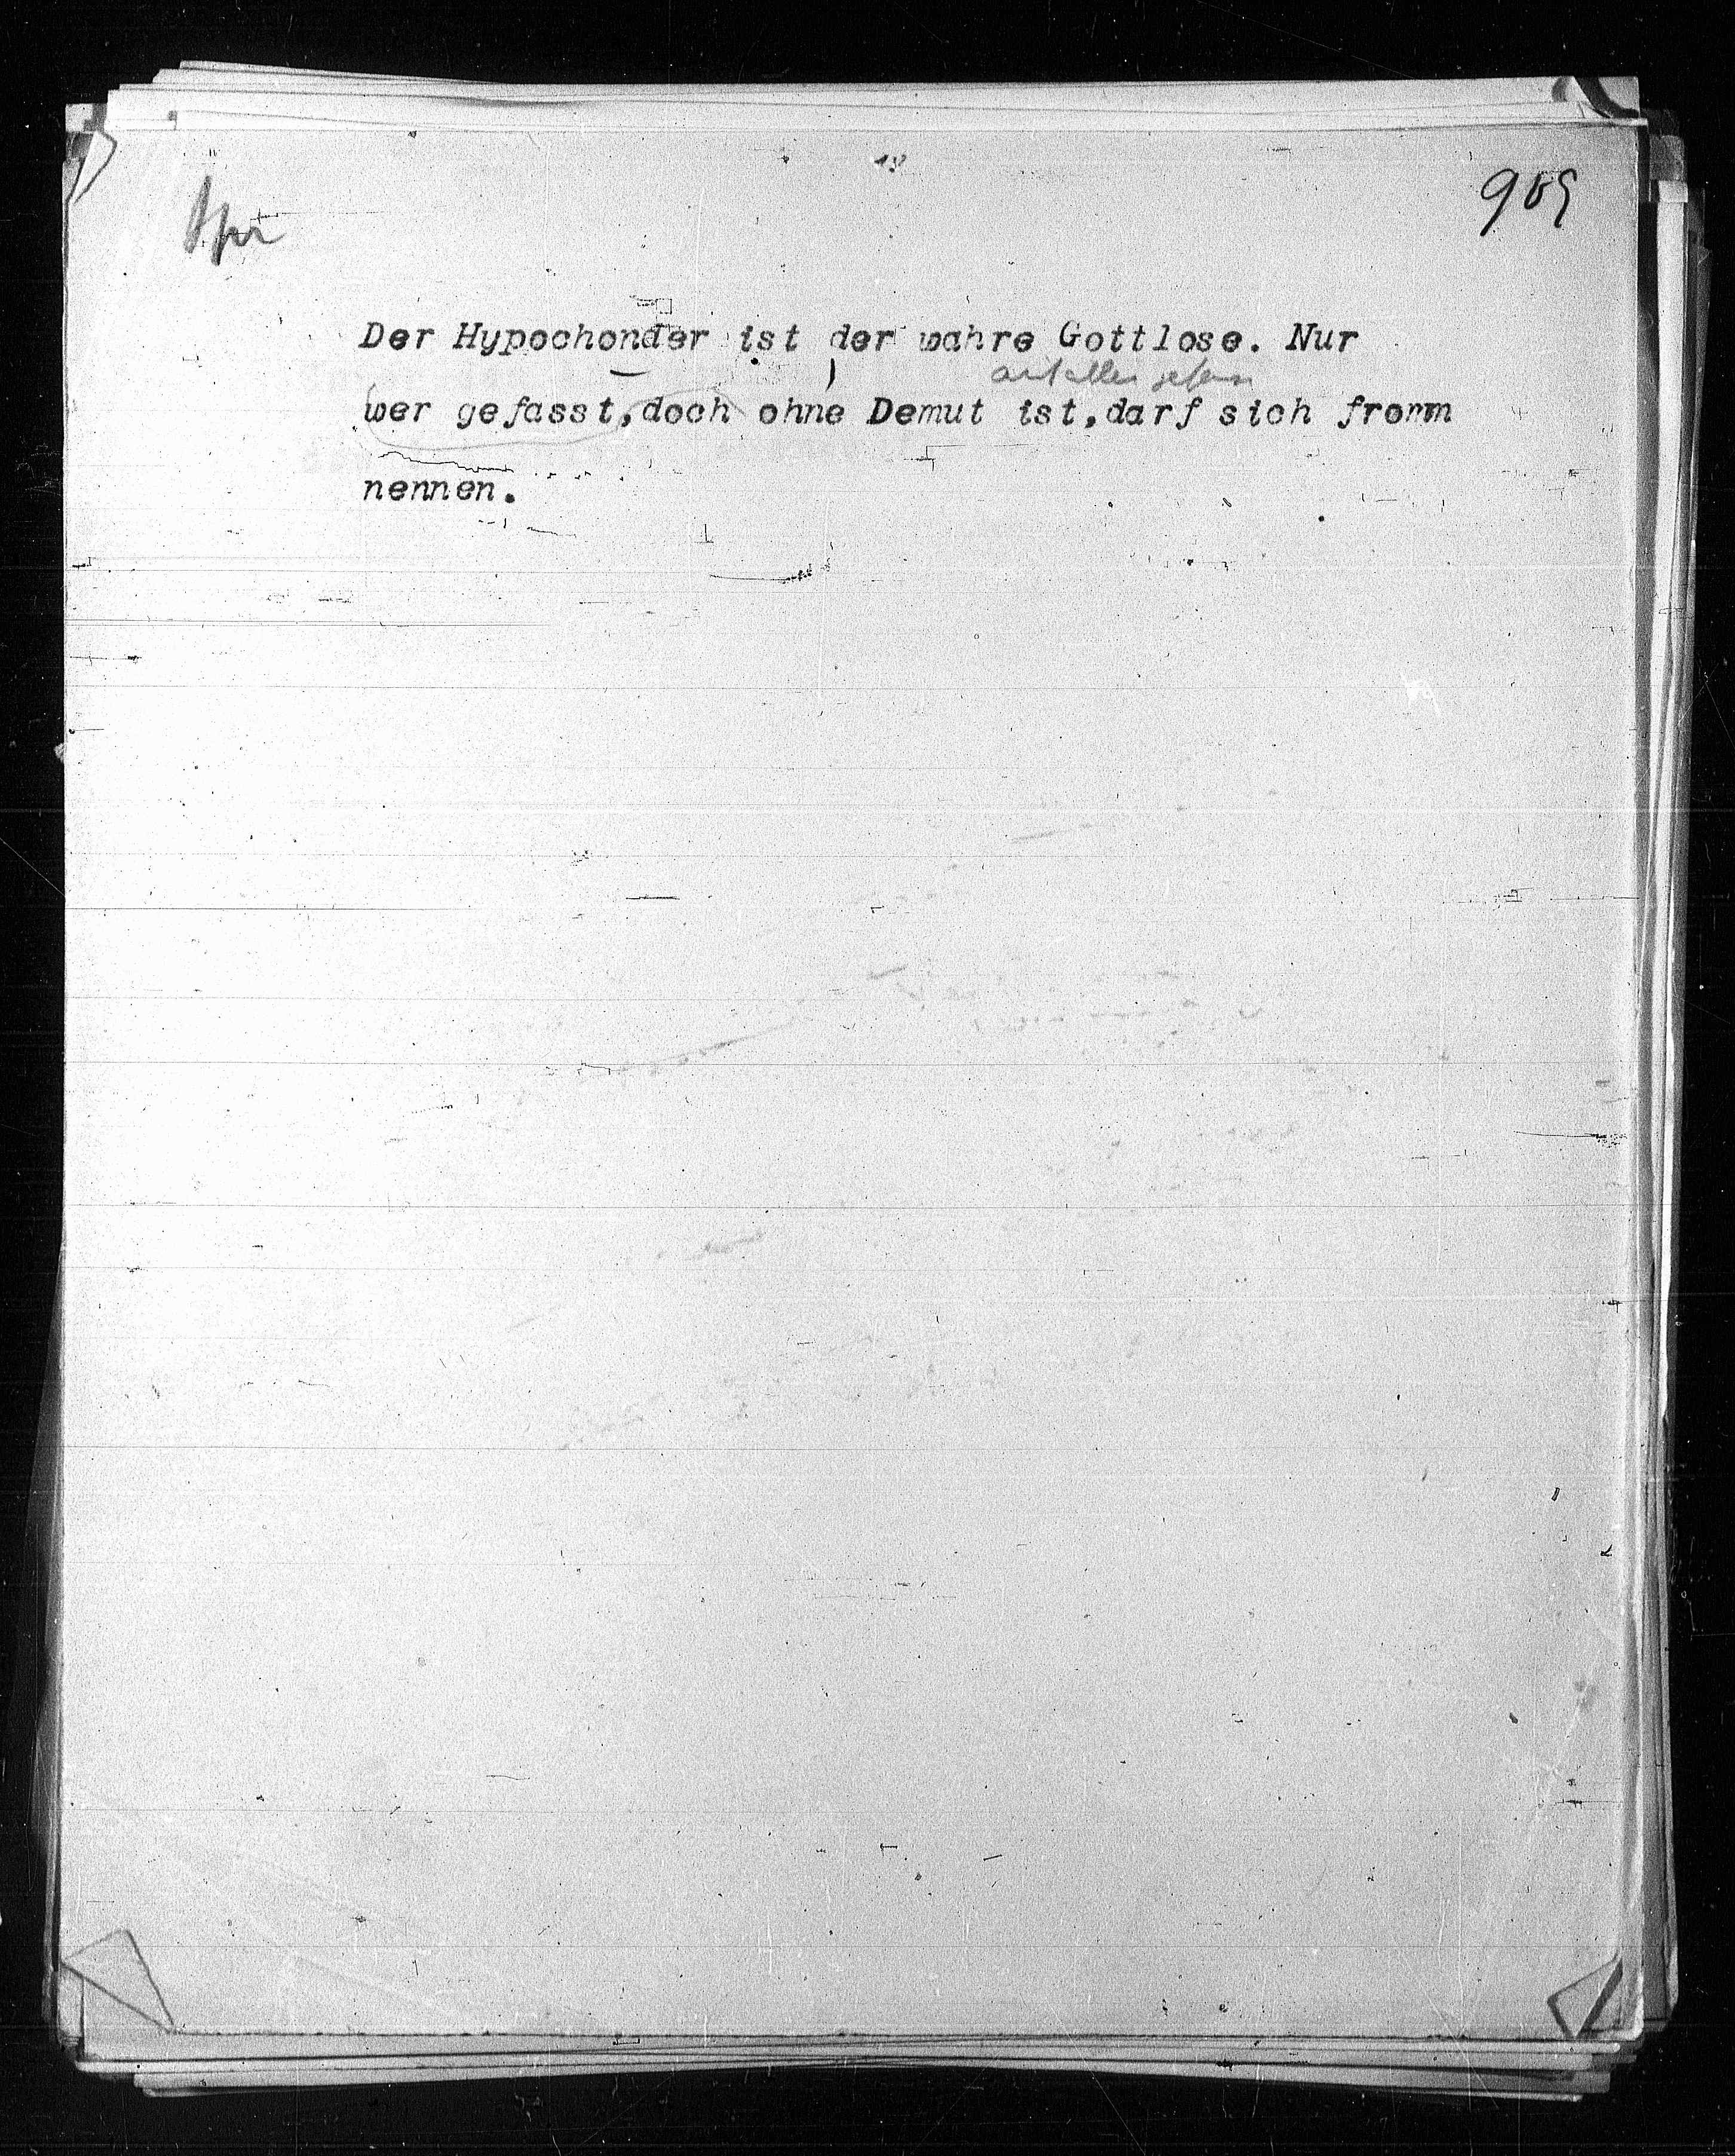 989
Der Hypochonder ist der wahre Gottlose. Nur
wer gefasst,doch ohne Demut ist,darf sich fromm
nennen.